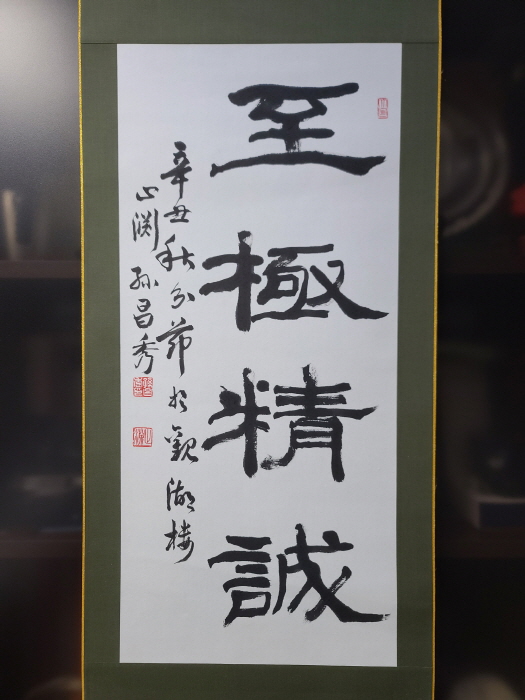 至極精誠
辛丑秋分節於觀湖樓
止渊 孫昌秀